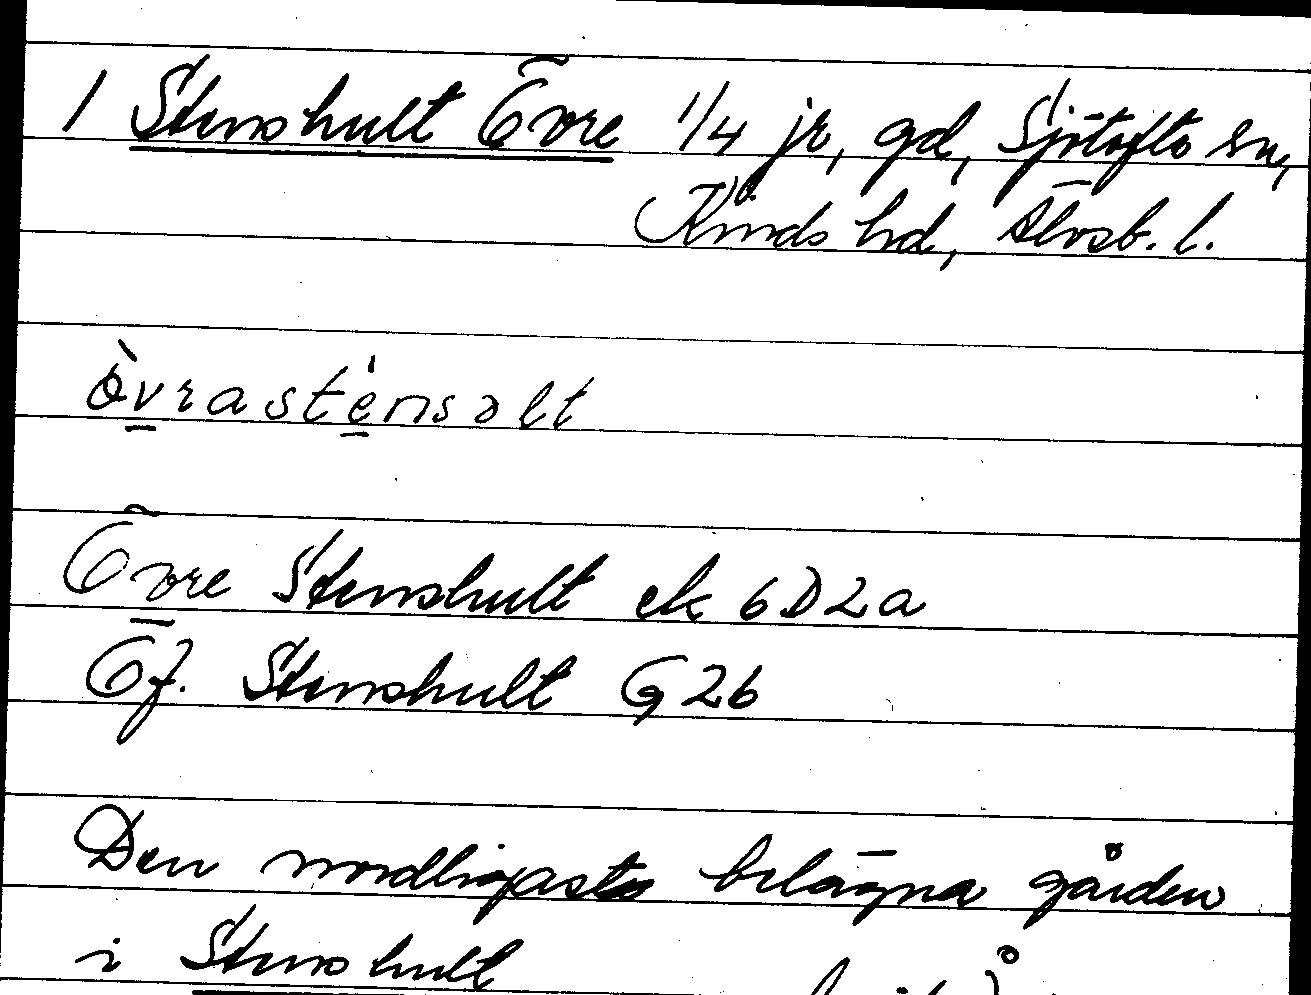 1 Stenshult Övre 1/4 jr, gd, Sjötofta sn,
Kinds hd, Älvsb. l.
òvrasténsəlt
Övre Stenshult ek 6D2a
Öf. Stenshult G2b
Den nordligaste belägna gården
i Stenshult